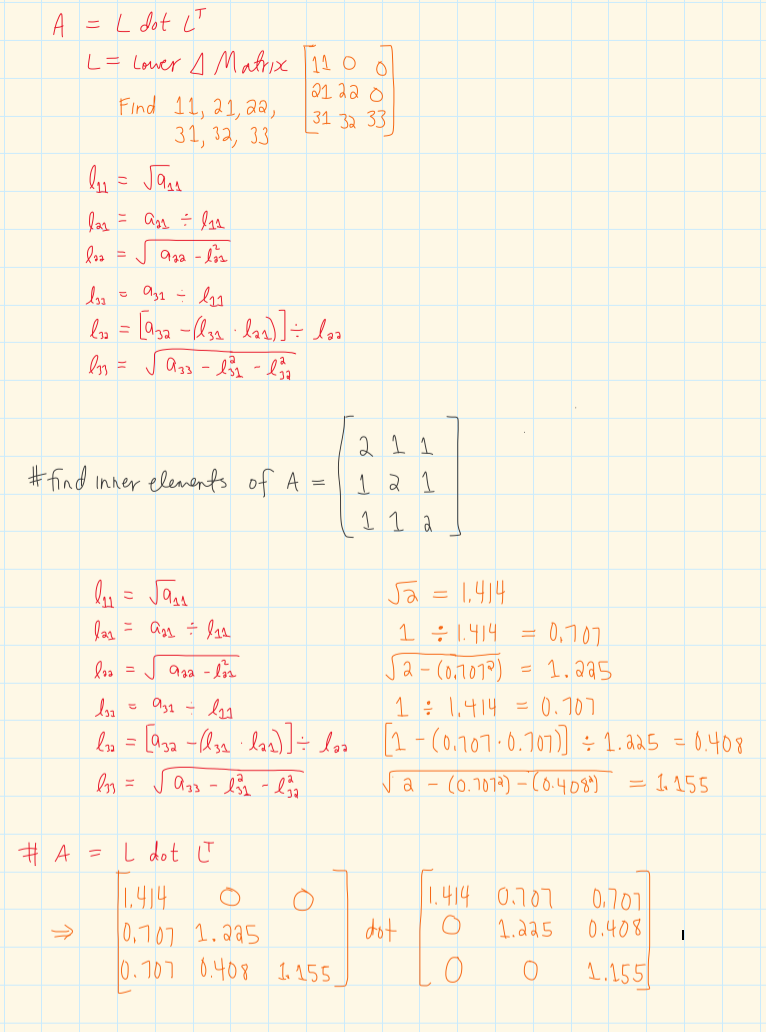 A = L dot Lᵀ
L = Lower Δ Matrix [11 0 0
21 22 0
31 32 33]
Find 11, 21, 22,
31, 32, 33
l₁₁ = √a₁₁
l₂₁ = a₂₁ ÷ l₁₁
l₂₂ = √(a₂₂ - l₂₁²)
l₃₁ = a₃₁ ÷ l₁₁
l₃₂ = [a₃₂ - (l₃₁ · l₂₁)] ÷ l₂₂
l₃₃ = √(a₃₃ - l₃₁² - l₃₂²)
#find inner elements of A = [2 1 1
1 2 1
1 1 2]
l₁₁ = √a₁₁ √2 = 1.414
l₂₁ = a₂₁ ÷ l₁₁ 1 ÷ 1.414 = 0.707
l₂₂ = √(a₂₂ - l₂₁²) √(2 - (0.707²)) = 1.225
l₃₁ = a₃₁ ÷ l₁₁ 1 ÷ 1.414 = 0.707
l₃₂ = [a₃₂ - (l₃₁ · l₂₁)] ÷ l₂₂ [1 - (0.707 · 0.707)] ÷ 1.225 = 0.408
l₃₃ = √(a₃₃ - l₃₁² - l₃₂²) √(2 - (0.707²) - (0.408²)) = 1.155
# A = L dot Lᵀ
⇒ [1.414 0 0
0.707 1.225
0.707 0.408 1.155] dot [1.414 0.707 0.707
0 1.225 0.408
0 0 1.155]